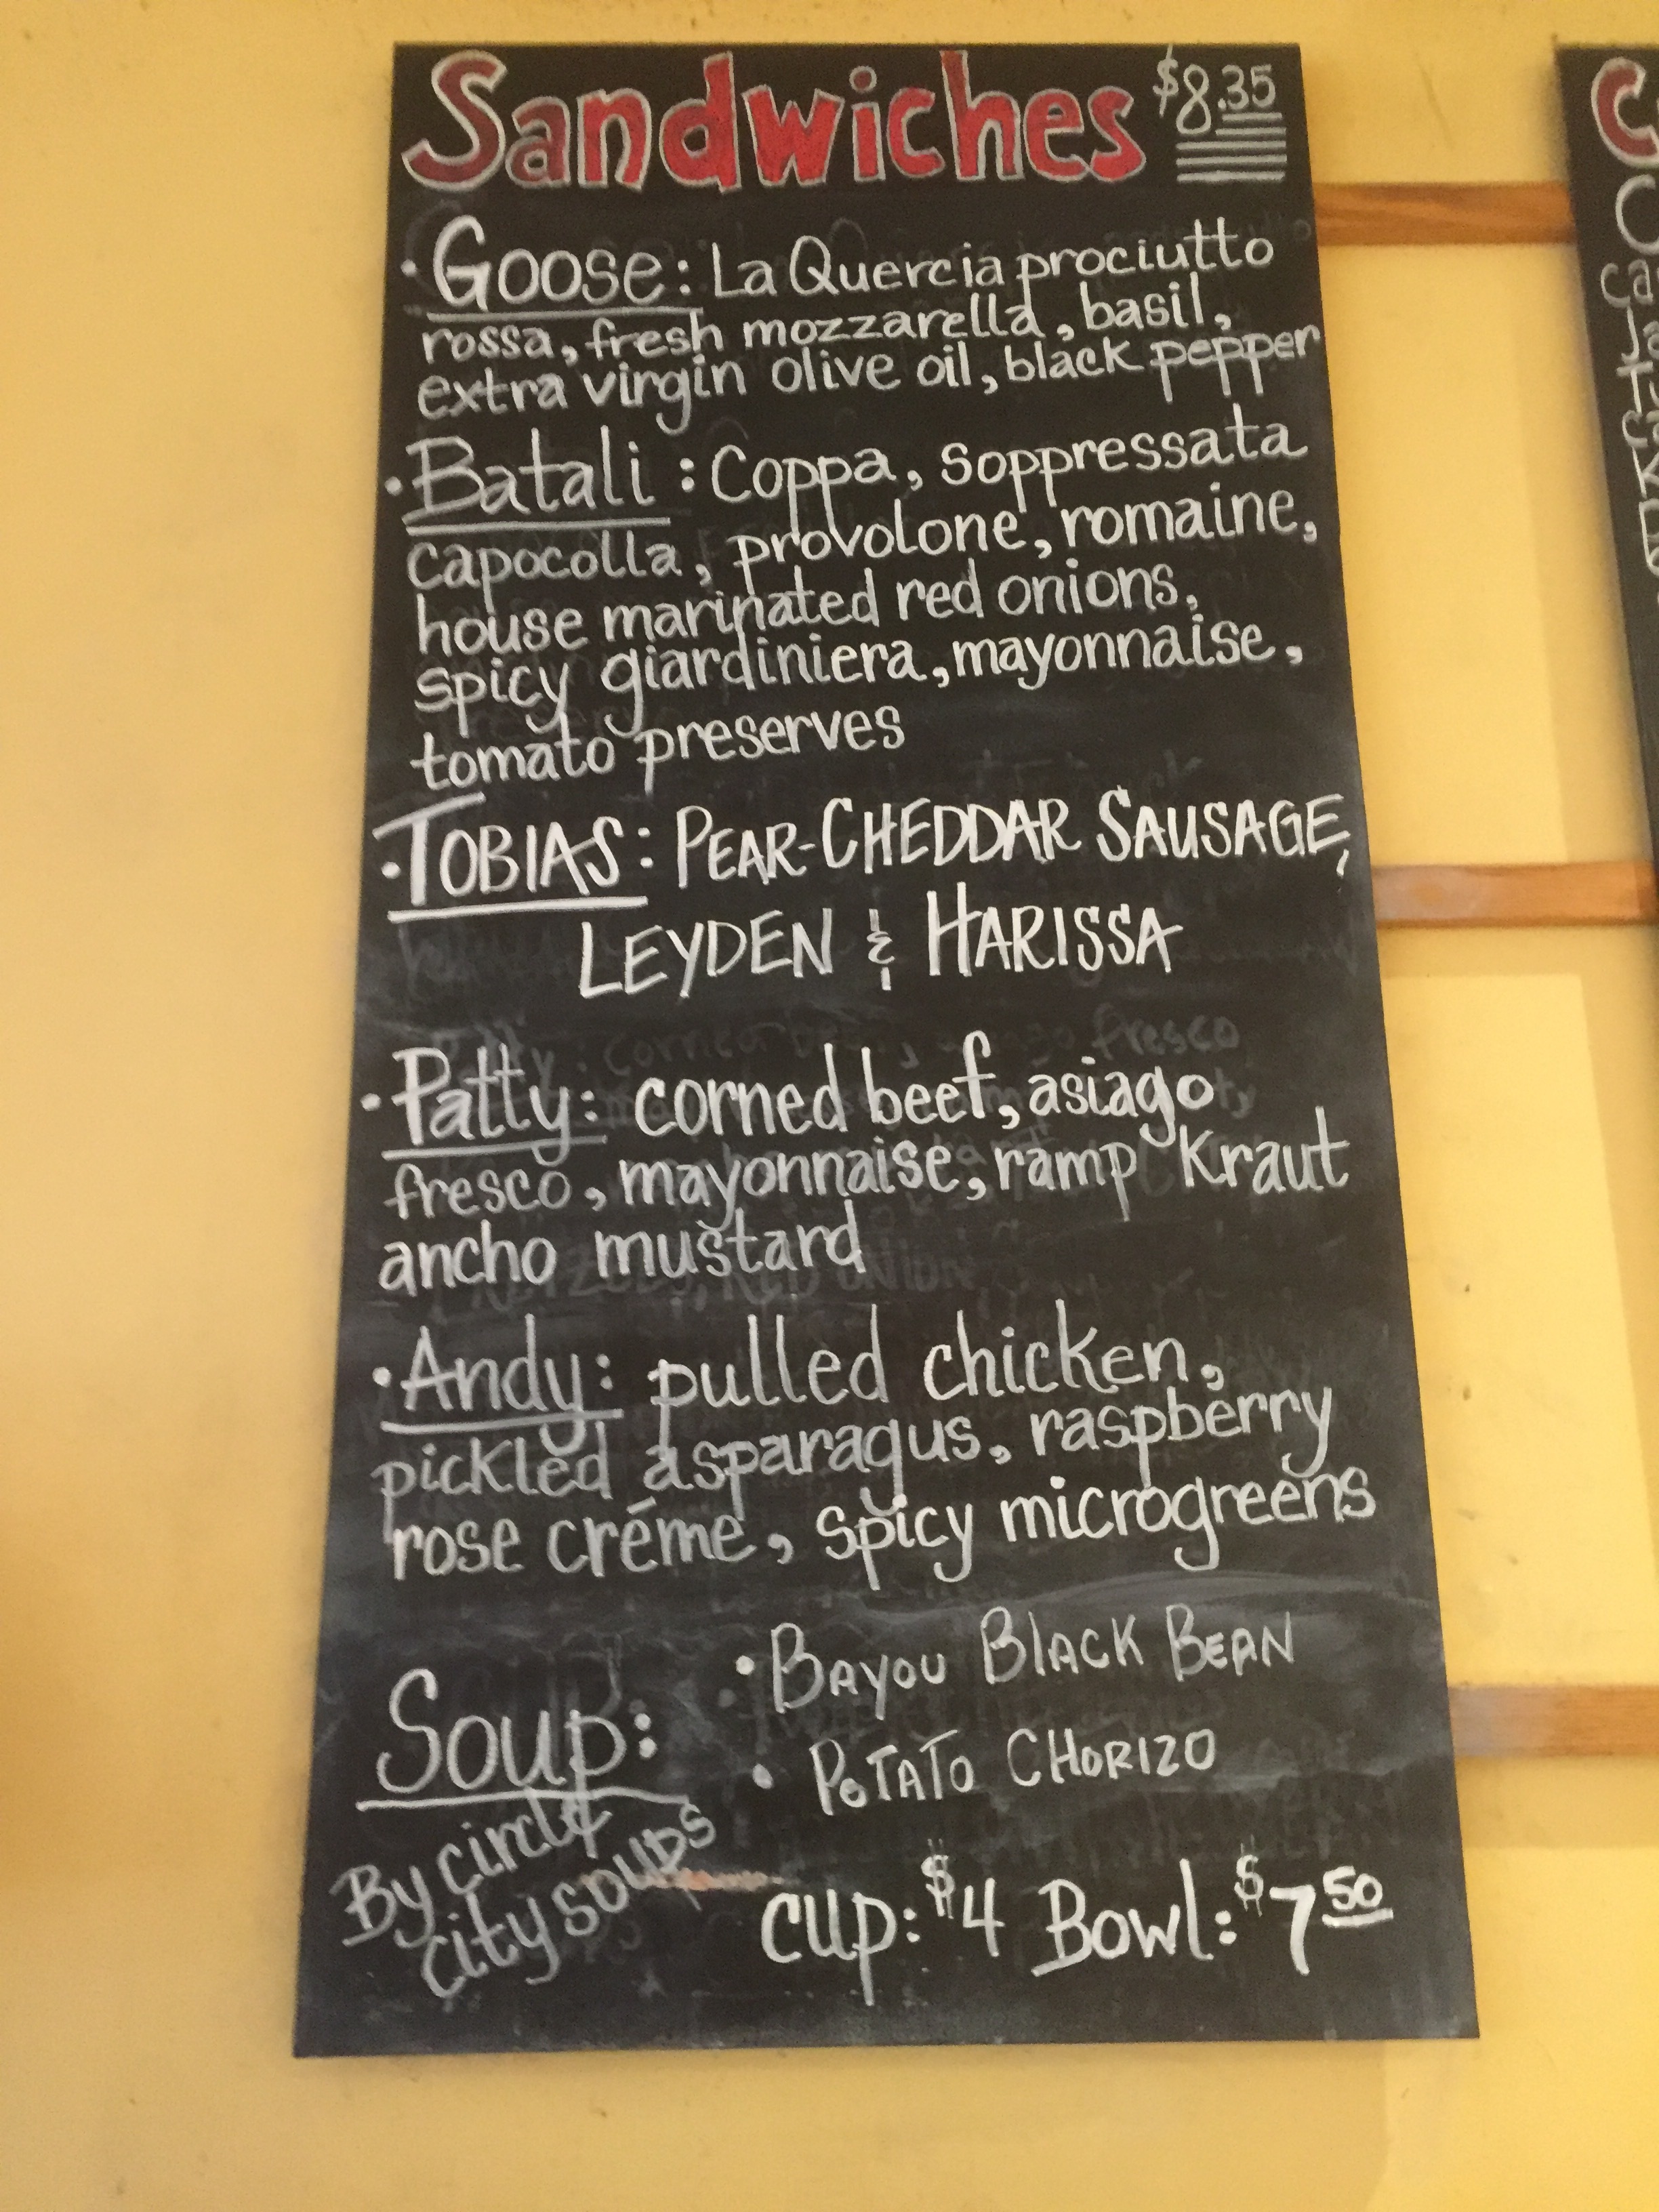 Sandwiches $8.35
• Goose: La Quercia prociutto
rossa, fresh mozzarella, basil,
extra virgin olive oil, black pepper
• Batali: Coppa, soppressata
capocolla, provolone, romaine,
house marinated red onions,
spicy giardiniera, mayonnaise,
tomato preserves
• TOBIAS: PEAR-CHEDDAR SAUSAGE,
LEYDEN & HARISSA
• Patty: corned beef, asiago
fresco, mayonnaise, ramp Kraut
ancho mustard
• Andy: pulled chicken,
pickled asparagus, raspberry
rose créme, spicy microgreens
Soup:
By circle
city soups
• BAYOU BLACK BEAN
• POTATO CHORIZO
cup: $4 Bowl: $7 50